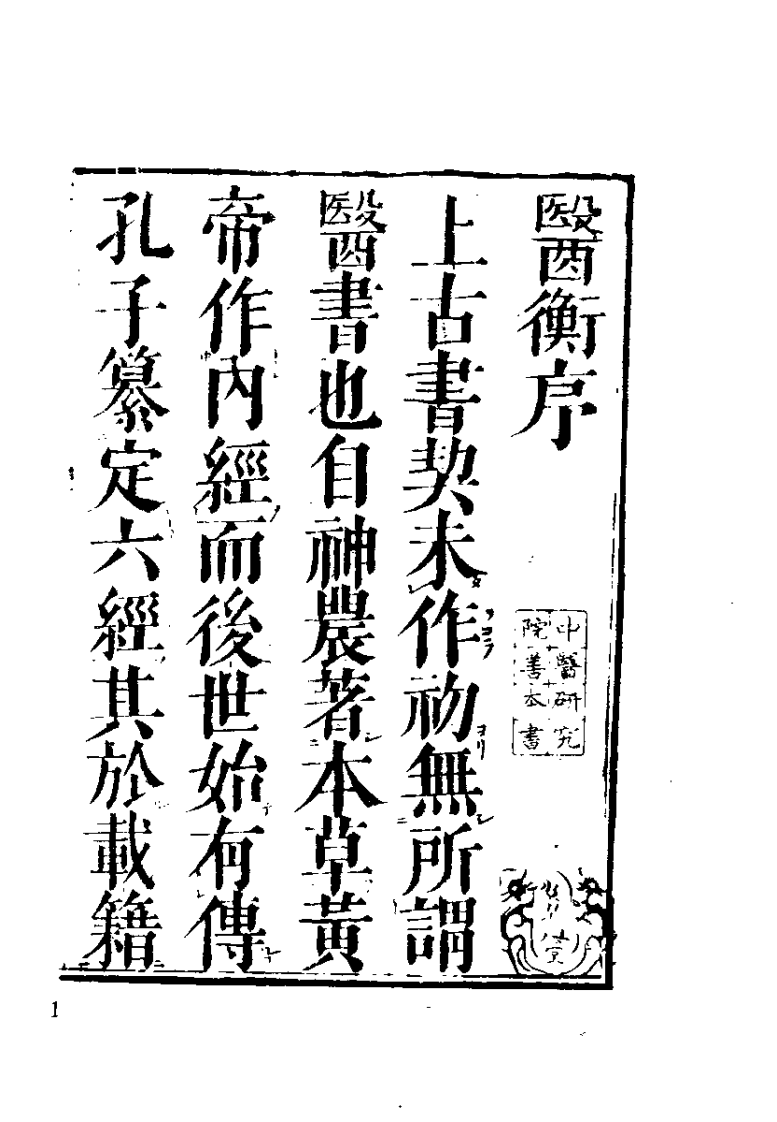 醫衡序
上古書契未作初無所謂
醫書也自神農著本草黃
帝作內經而後世始有傳
孔子纂定六經其於載籍
中醫研究
院善本書
1